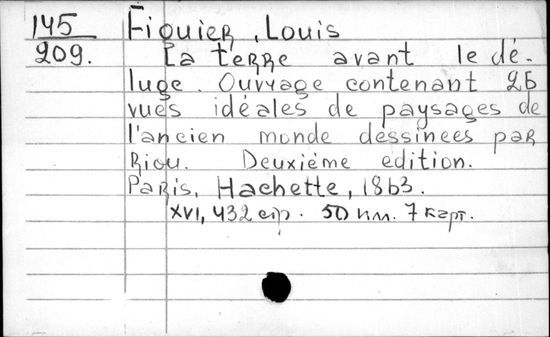 145 Figuier, Louis
209. La terre avant le dé-
luge. Ouvrage contenant 25
vues idéales de paysages de
l'ancien monde dessinées par
Riou. Deuxième edition.
Paris, Hachette, 1863.
XVI, 432 стр. 50 илл. 7 карт.